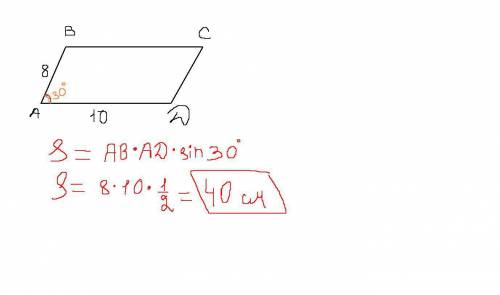 B C
8
30°
A 10 D
S = AB·AD·sin30°
S = 8·10·1/2 = 40 см